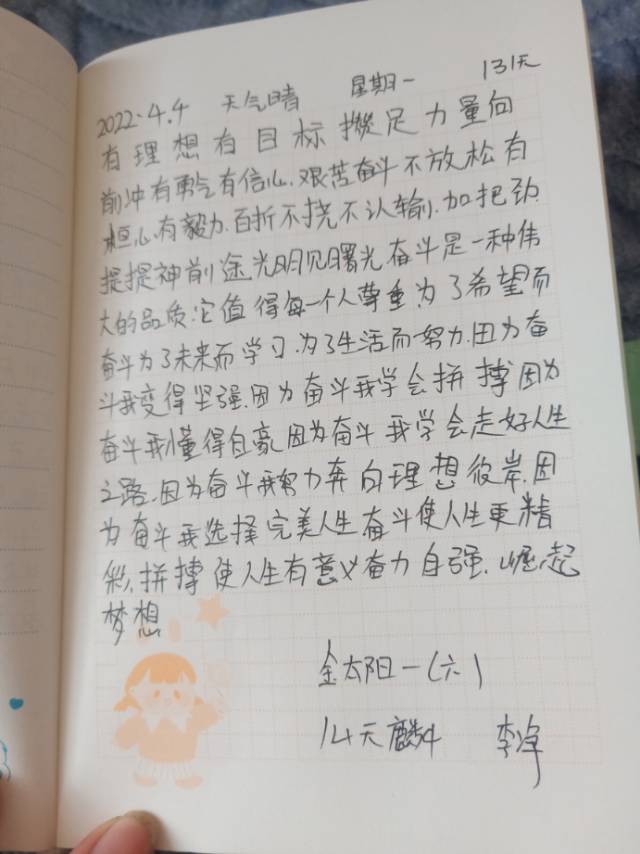 2022.4.4 天气晴 星期一 131天
有理想有目标攒足力量向
前冲有勇气有信心.艰苦奋斗不放松有
恒心.有毅力.百折不挠不认输.加把劲.
提提神前途光明见曙光奋斗是一种伟
大的品质.它值得每一个人尊重.为了希望而
奋斗为了未来而学习.为了生活而努力.因为奋
斗我变得坚强.因为奋斗我学会拼搏因为
奋斗我懂得自豪.因为奋斗我学会走好人生
之路.因为奋斗我努力奔向理想彼岸.因
为奋斗我选择完美人生奋斗使人生更精
彩,拼搏使人生有意义奋力自强.崛起
梦想
金太阳一(六)
14天麟 李净